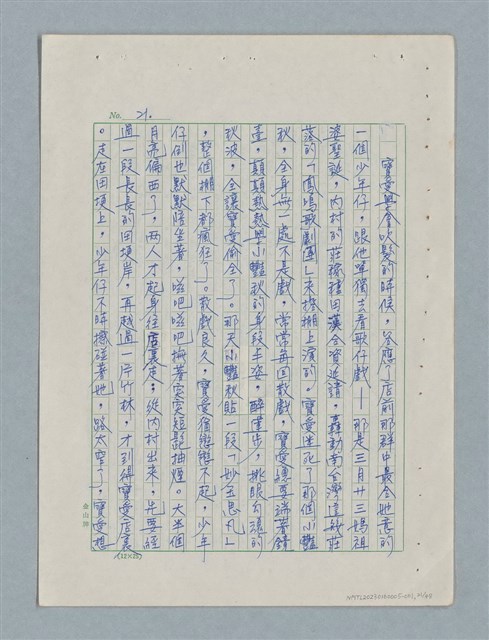 No. 21.
寶愛學會吹髮的時候，答應了店前那群中最合她意的
一個少年仔，跟他單獨去看歌仔戲—那是三月廿三媽祖
婆聖誕，內村的莊稼種田漢合資延請，轟動南台灣這般莊
落的「鳳鳴歌劇團」來搭棚上演的。寶愛迷死了那個小豔
秋，全身無一處不是戲，常常每回散戲，寶愛總要端著鏡
臺，顛顛熱熱學小豔秋的身段丰姿，醉蓮步，挑眼勾溜的
秋波，全讓寶愛偷全了。那天小豔秋貼一段「妙玉思凡」
，整個棚下都瘋狂了。散戲良久，寶愛猶戀戀不起，少年
仔倒也默默陪坐著，嗞吧嗞吧撫著突突短髭抽煙。大半個
月亮偏西了，兩人才起身往店裏走；從內村出來，先要經
過一段長長的田埂岸，再越過一片竹林，才到得寶愛店裏
。走在田埂上，少年仔不時碰著她，路太窄了，寶愛想
(12×25)